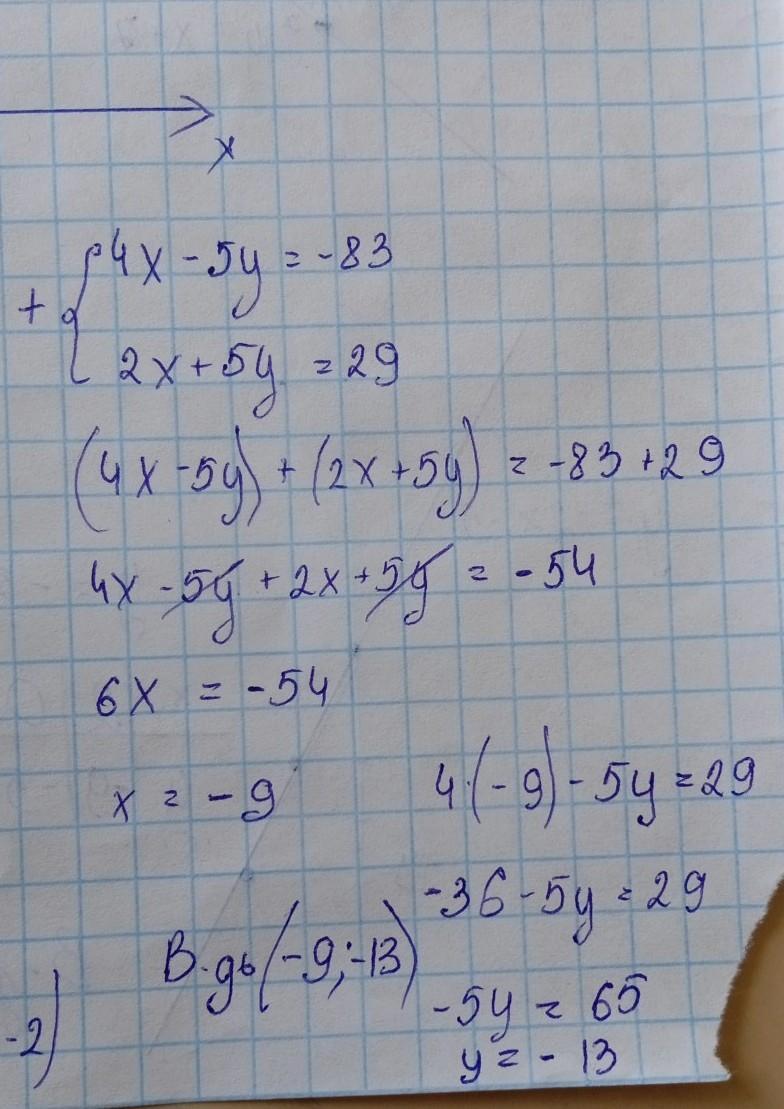 x
+ { 4x - 5y = -83
2x + 5y = 29
(4x - 5y) + (2x + 5y) = -83 + 29
4x - 5y + 2x + 5y = -54
6x = -54
x = -9
4·(-9) - 5y = 29
-36 - 5y = 29
-5y = 65
y = -13
В-дь (-9; -13)
-2)